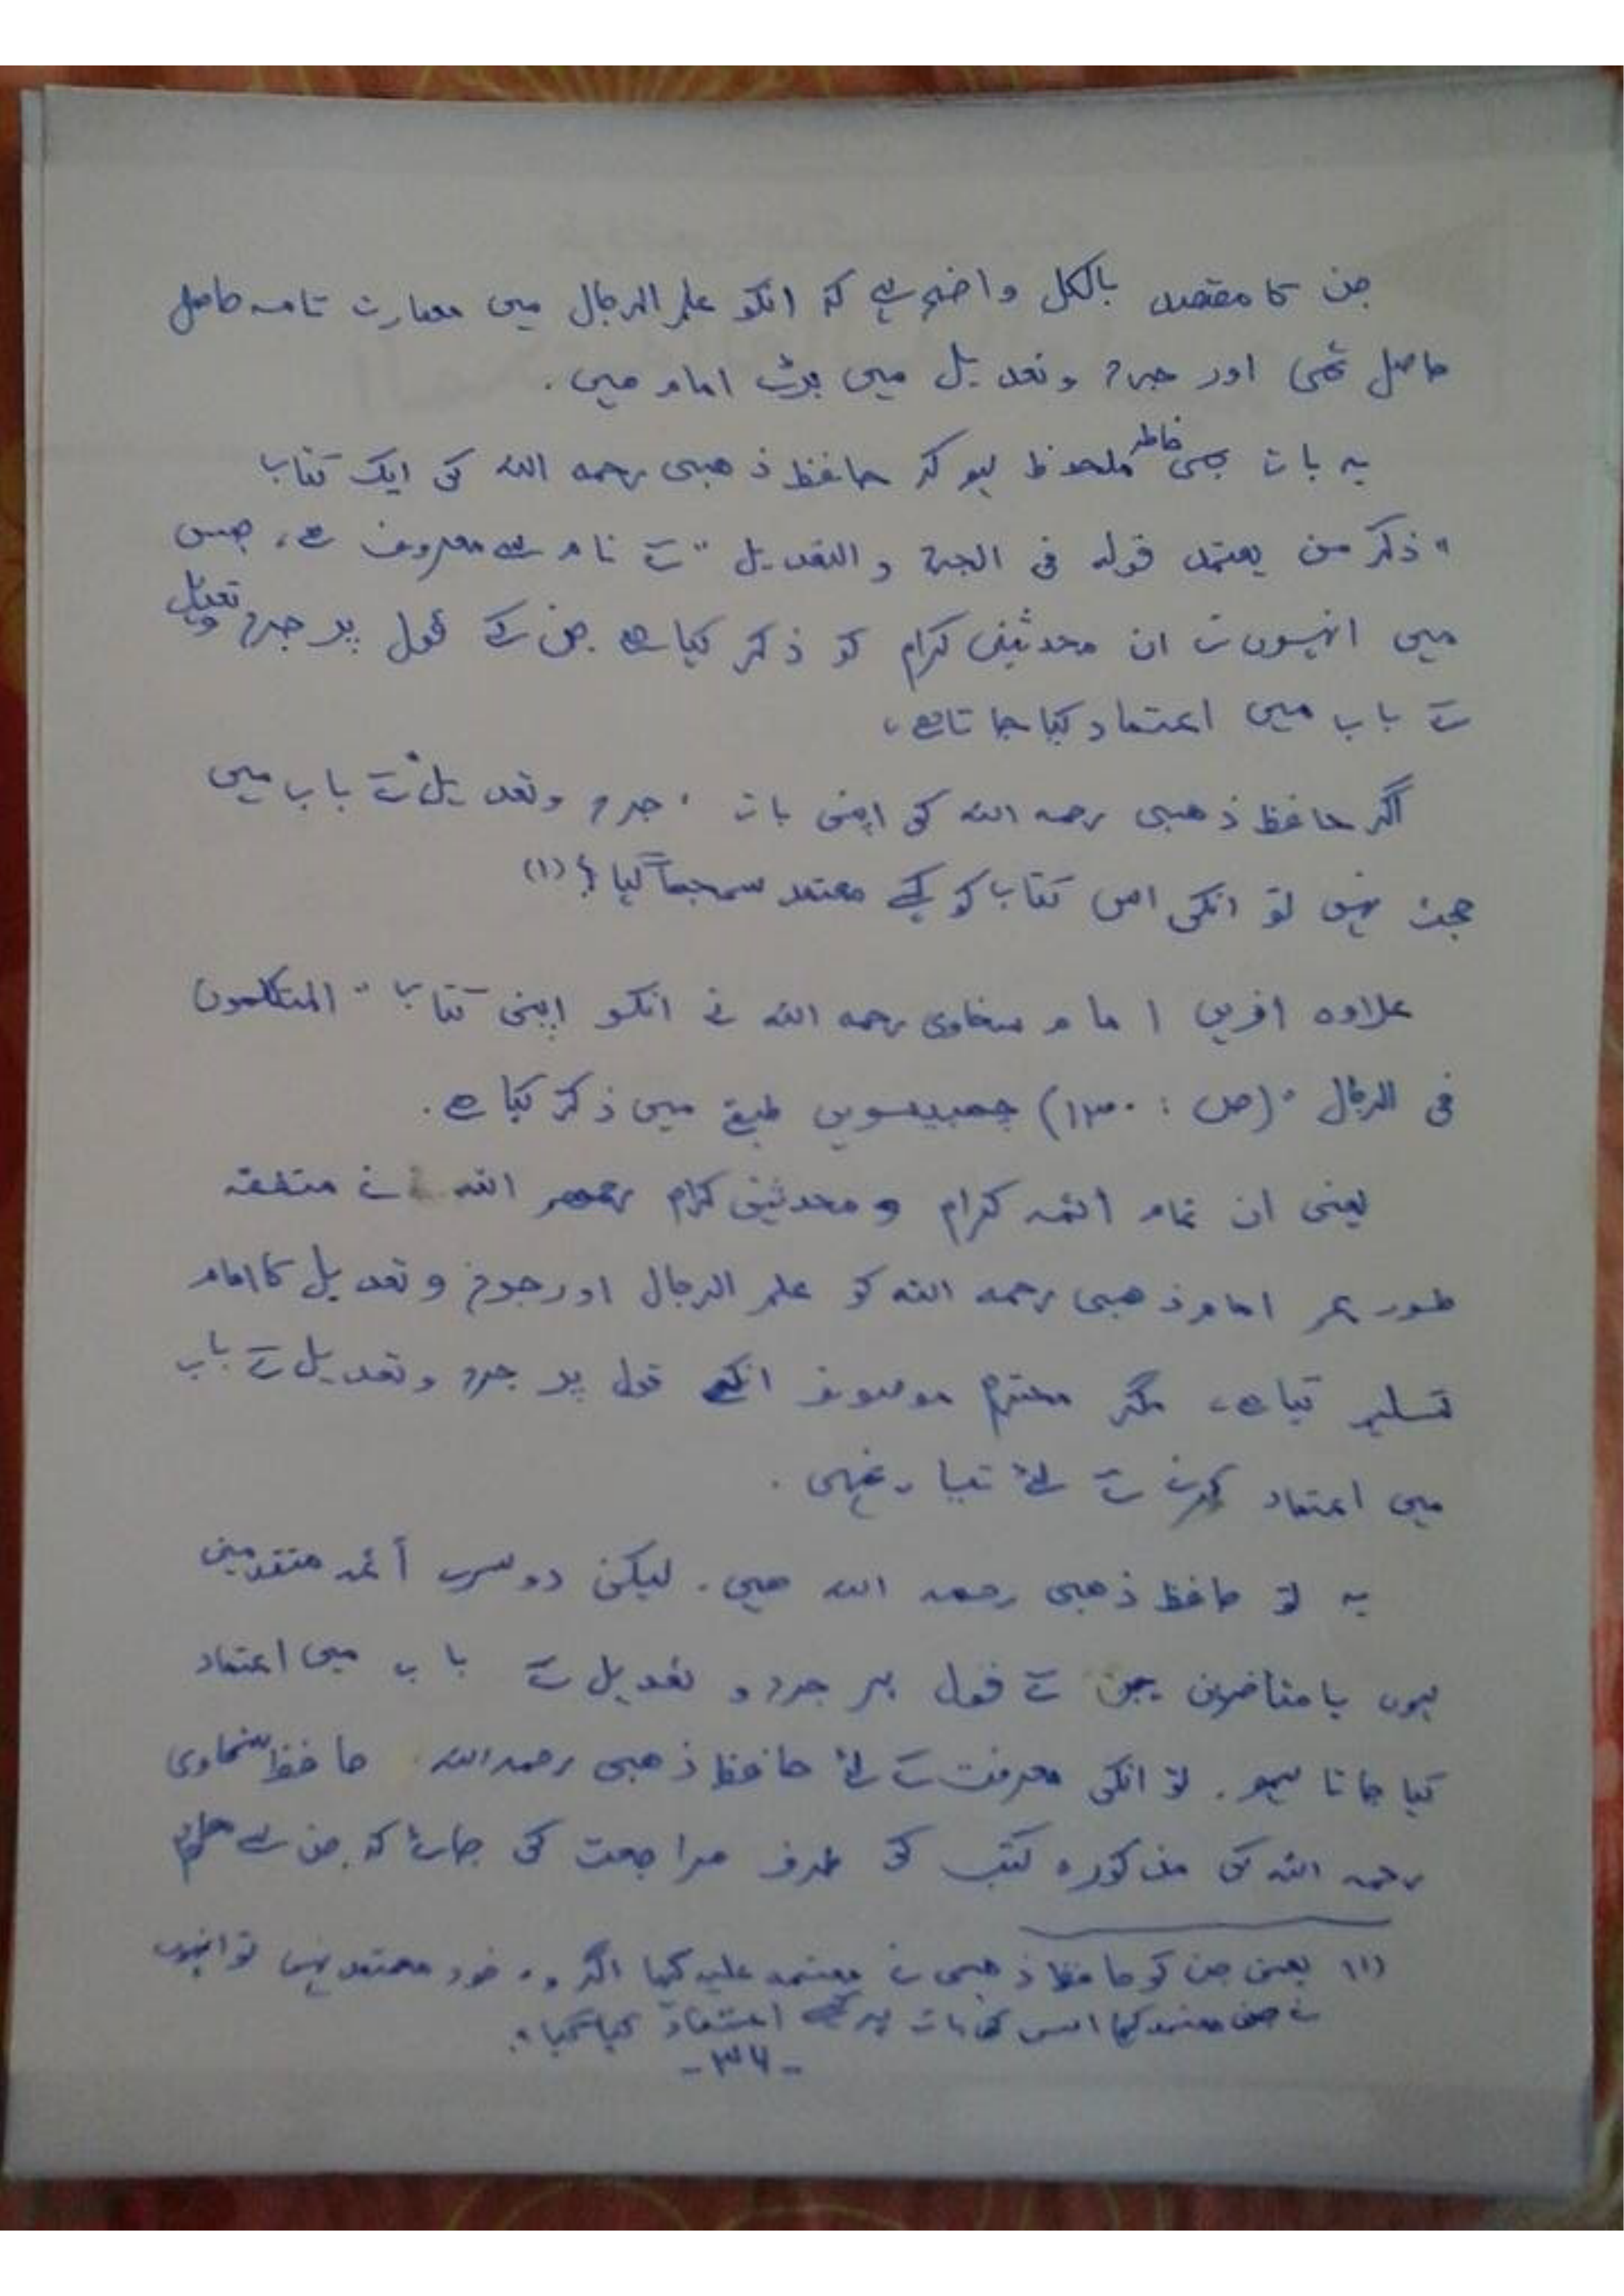 جن کا مقصد بالکل واضح ہے کہ انکو علم الرجال میں مہارت تامہ حاصل
حاصل تھی اور جرح و تعدیل میں بڑے امام ہیں .
یہ بات بھی خاطر ملحوظ ہو کہ حافظ ذھبی رحمہ اللہ کی ایک کتاب
" ذکر من یعتمد قولہ فی الجرح و التعدیل " کے نام سے معروف ہے، جس
میں انہوں نے ان محدثین کرام کو ذکر کیا ہے جن کے قول پر جرح و تعدیل
کے باب میں اعتماد کیا جاتا ہے،
اگر حافظ ذھبی رحمہ اللہ کی اپنی بات " جرح و تعدیل " کے باب میں
حجت نہیں تو انکی اس کتاب کو کیسے معتمد سمجھا گیا ؟ (۱)
علاوہ ازیں امام سخاوی رحمہ اللہ نے انکو اپنی کتاب " المتکلمون
فی الرجال " (ص : ۱۳۰) چھبیسویں طبقے میں ذکر کیا ہے .
یعنی ان تمام ائمہ کرام و محدثین کرام رحمھم اللہ نے متفقہ
طور پر امام ذھبی رحمہ اللہ کو علم الرجال اور جرح و تعدیل کا امام
تسلیم کیا ہے، مگر محترم موصوف انکے قول پر جرح و تعدیل کے باب
میں اعتماد کرنے کے لئے تیار نہیں .
یہ تو حافظ ذھبی رحمہ اللہ ھیں . لیکن دوسرے أئمہ متقدمین
ہوں یا متاخرین جن کے قول پر جرح و تعدیل کے باب میں اعتماد
کیا جاتا ہو . تو انکی معرفت کے لئے حافظ ذھبی رحمہ اللہ حافظ سخاوی
رحمہ اللہ کی مذکورہ کتب کی طرف مراجعت کی جائے کہ جن سے معلوم
(۱) یعنی جن کو حافظ ذھبی نے معتمد علیہ کہا اگر وہ خود معتمد نہیں تو انہوں
نے جن معتمد کہا اس کی بات پر کیسے اعتماد کیا گیا ؟.
- ۳۶ -